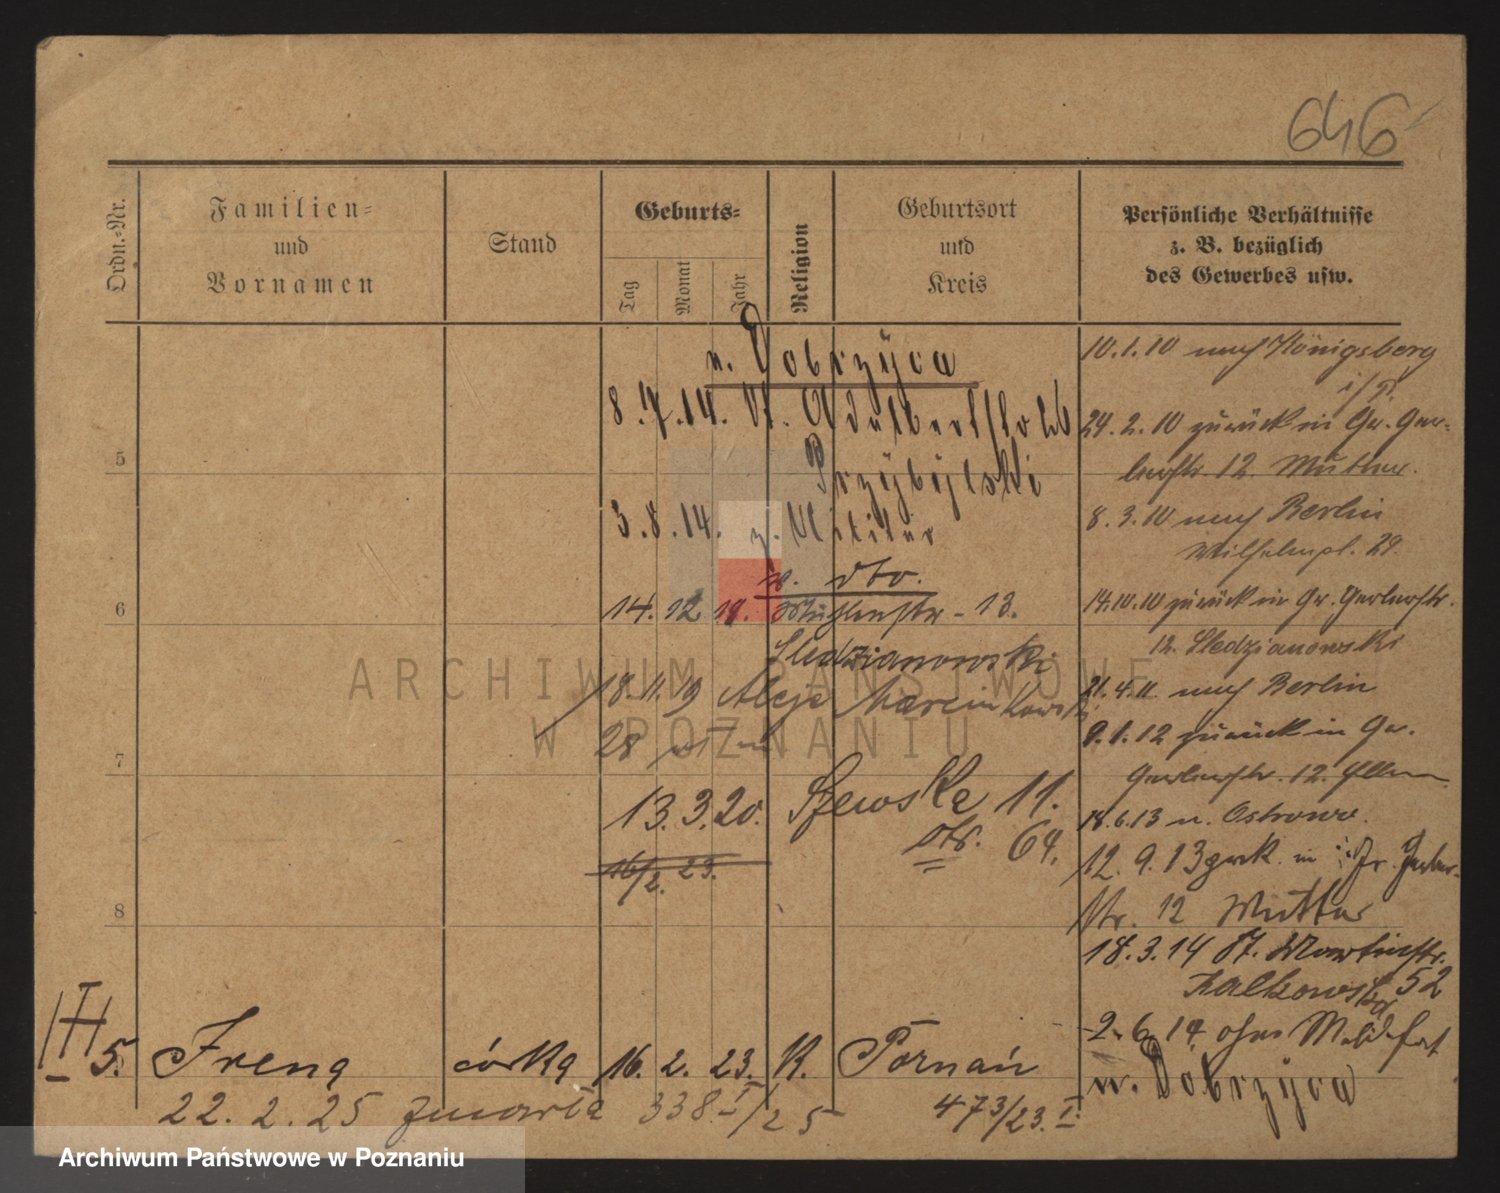 646
Ordn.-Nr.
Familien-
und
Vornamen
Stand
Geburts-
Tag
Monat
Jahr
Religion
Geburtsort
und
Kreis
Persönliche Verhältnisse
z. B. bezüglich
des Gewerbes usw.
n. Dobrzyca
8.7.14. St. Adalbertstr.
Przybylski
3.8.14. z. Militär
w. dto.
14. 12 18. Mühlenstr - 13.
Sledzianowski
18.11.19 Aleje Marcinkowski
28
13.3.20. Szewska 11.
Str. 64.
16/2. 23.
5
6
7
8
10.1.10 nach Königsberg
i/Pr.
24.2.10 zurück in Gr. Ger-
berstr. 12. Mutter.
8.3.10 nach Berlin
Wilhelmpl. 29.
14.10.10 zurück in Gr. Gerberstr.
12. Sledzianowski
21.4.11. nach Berlin
9.1.12 zurück in Gr.
Gerberstr. 12. Eltern
18.6.13 n. Ostrowo.
12.9.13 zurk. in Gr. Gerber-
str. 12 Mutter
18.3.14 St. Martinstr.
52
2.6.14. ohne
n. Dobrzyca
III
5. Irena córka 16. 2. 23. K. Poznań
22. 2. 25 zmarła 338 I/25 473/23. I.
ARCHIWUM PAŃSTWOWE
W POZNANIU
Archiwum Państwowe w Poznaniu